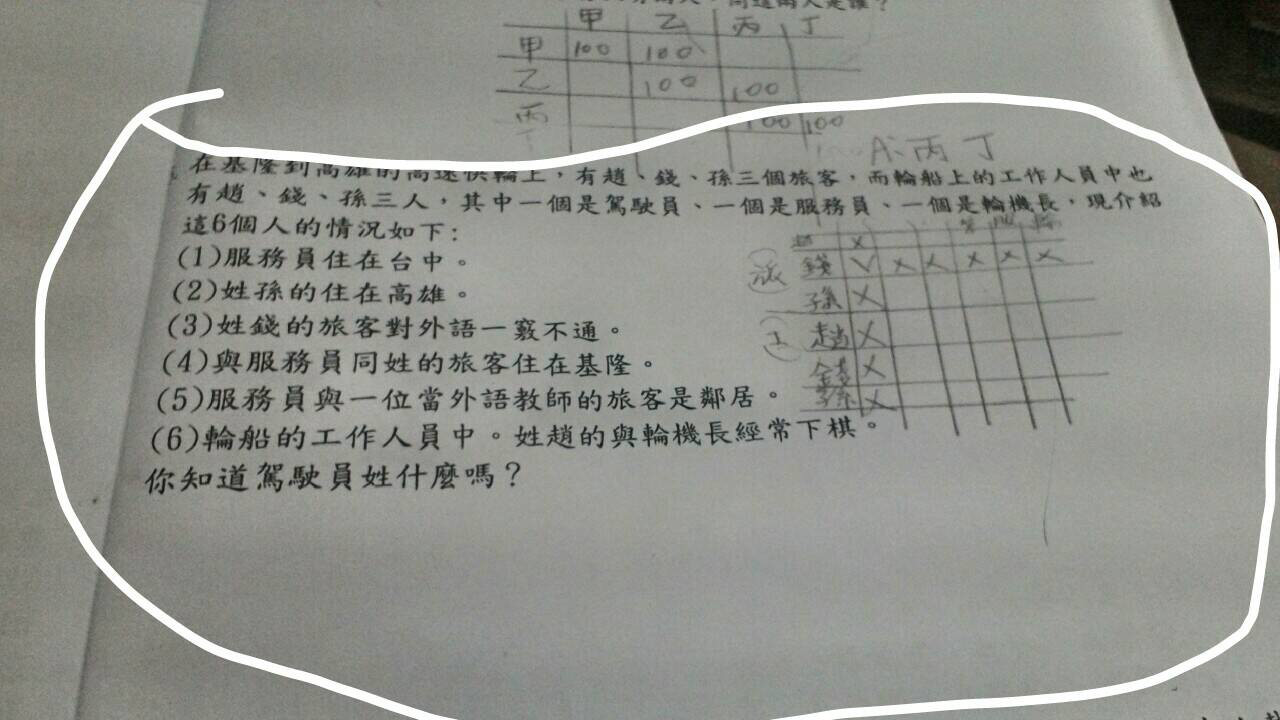 問這兩人是誰？
甲 乙 丙 丁
甲 100 100
乙 100 100
丙 100 100
A: 丙 丁
在基隆到高雄的高速快輪上，有趙、錢、孫三個旅客，而輪船上的工作人員中也
有趙、錢、孫三人，其中一個是駕駛員、一個是服務員、一個是輪機長，現介紹
這6個人的情況如下:
(1)服務員住在台中。
(2)姓孫的住在高雄。
(3)姓錢的旅客對外語一竅不通。
(4)與服務員同姓的旅客住在基隆。
(5)服務員與一位當外語教師的旅客是鄰居。
(6)輪船的工作人員中。姓趙的與輪機長經常下棋。
你知道駕駛員姓什麼嗎？
趙 X
旅 錢 V X X X X X
孫 X
工 趙 X
錢 X
孫 X